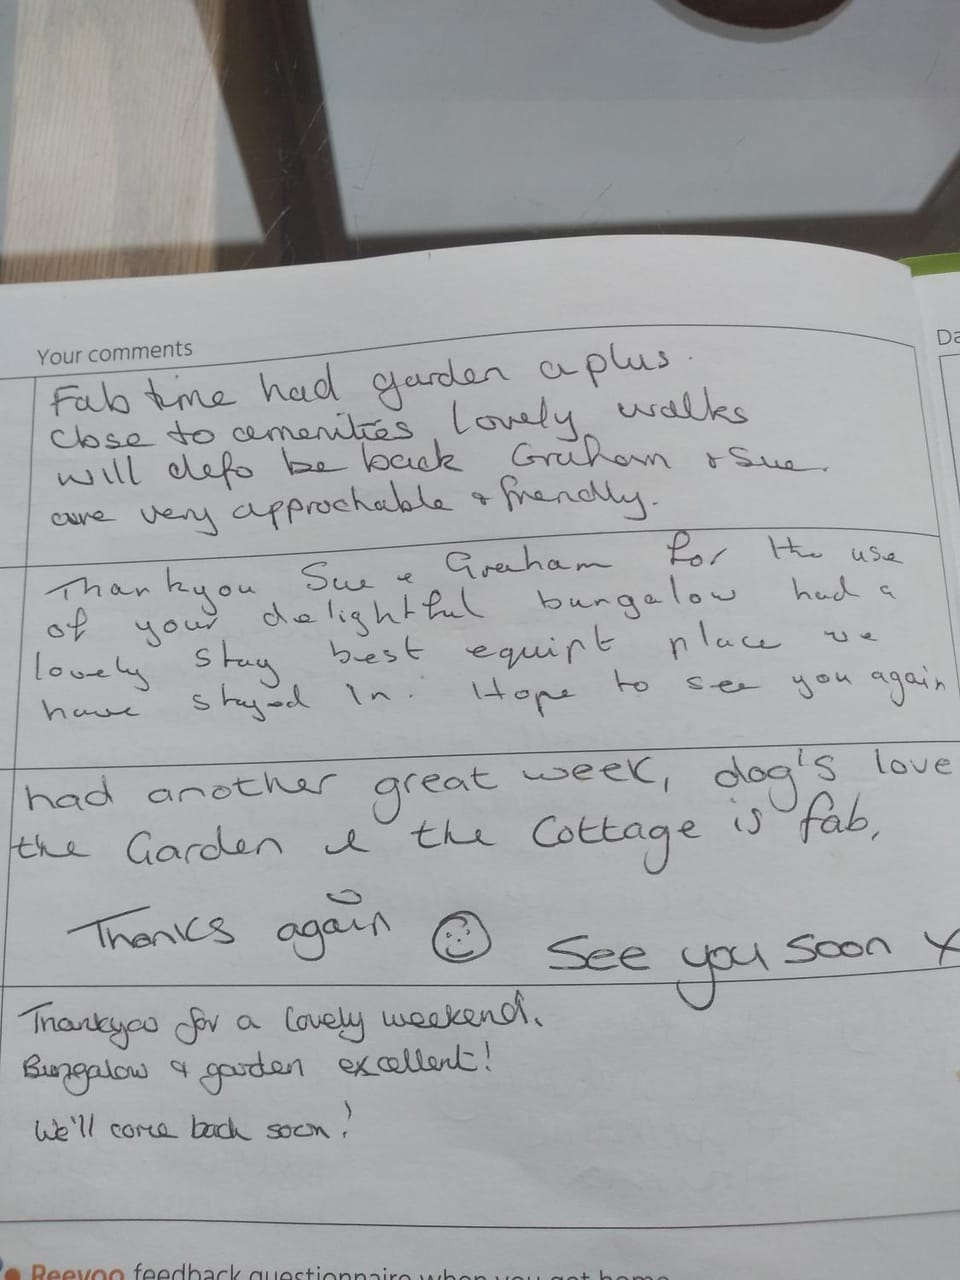 Your comments
Da
Fab time had garden a plus.
close to amenities lovely walks
will defo be back Graham + Sue.
are very approchable + friendly.
Thankyou Sue + Graham for the use
of your delightful bungalow had a
lovely stay best equipt place we
have stayed In. Hope to see you again
had another great week, dog's love
the Garden & the Cottage is fab,
Thanks again ☺ See you soon x
Thankyou for a lovely weekend.
Bungalow & garden excellent!
We'll come back soon!
Reevoo feedback questionnaire when you get home